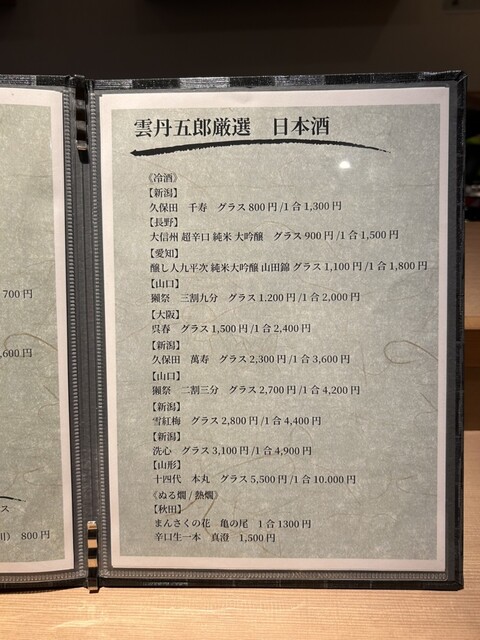 雲丹五郎厳選　日本酒
《冷酒》
【新潟】
久保田　千寿　グラス 800 円 /1 合 1,300 円
【長野】
大信州 超辛口 純米 大吟醸　グラス 900 円 /1 合 1,500 円
【愛知】
醸し人九平次 純米大吟醸 山田錦 グラス 1,100 円 /1 合 1,800 円
【山口】
獺祭　三割九分　グラス 1.200 円 /1 合 2,000 円
【大阪】
呉春　グラス 1,500 円 /1 合 2,400 円
【新潟】
久保田　萬寿　グラス 2,300 円 /1 合 3,600 円
【山口】
獺祭　二割三分　グラス 2,700 円 /1 合 4,200 円
【新潟】
雪紅梅　グラス 2,800 円 /1 合 4,400 円
【新潟】
洗心　グラス 3,100 円 /1 合 4,900 円
【山形】
十四代　本丸　グラス 5,500 円 /1 合 10.000 円
《ぬる燗 / 熱燗》
【秋田】
まんさくの花　亀の尾　1 合 1300 円
辛口生一本　真澄　1,500 円
700 円
,600 円
ス
800 円